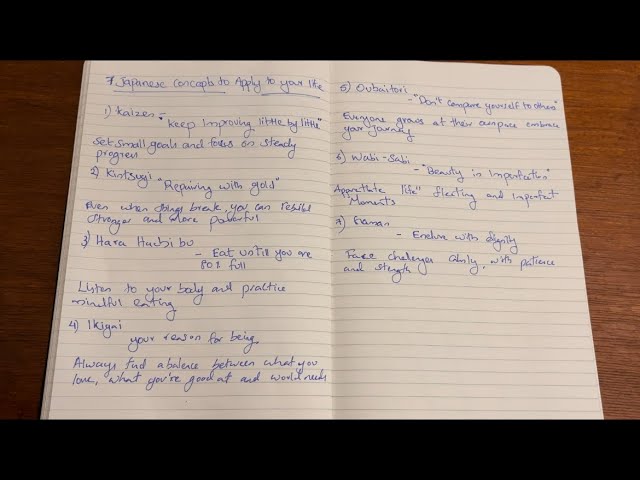 7 Japanese Concepts to Apply to your life
1) Kaizen -
"Keep Improving little by little"
Set small goals and focus on steady
progress
2) Kintsugi "Repairing with gold"
Even when things break, you can
stronger and more powerful
3) Hara Hachi bu
- Eat untill you are
80% full
Listen to your body and practice
mindful eating
4) Ikigai
your reason for being.
Always find a balance between what you
love, what you're good at and world needs
5) Oubaitori
- "Don't compare yourself to others"
Everyone grows at their own pace embrace
your journey
6) Wabi-Sabi
- "Beauty in imperfection"
Appretiate life" fleeting and imperfect
Moments
7) Gaman
- Endure with dignity
Face with patience
and strength